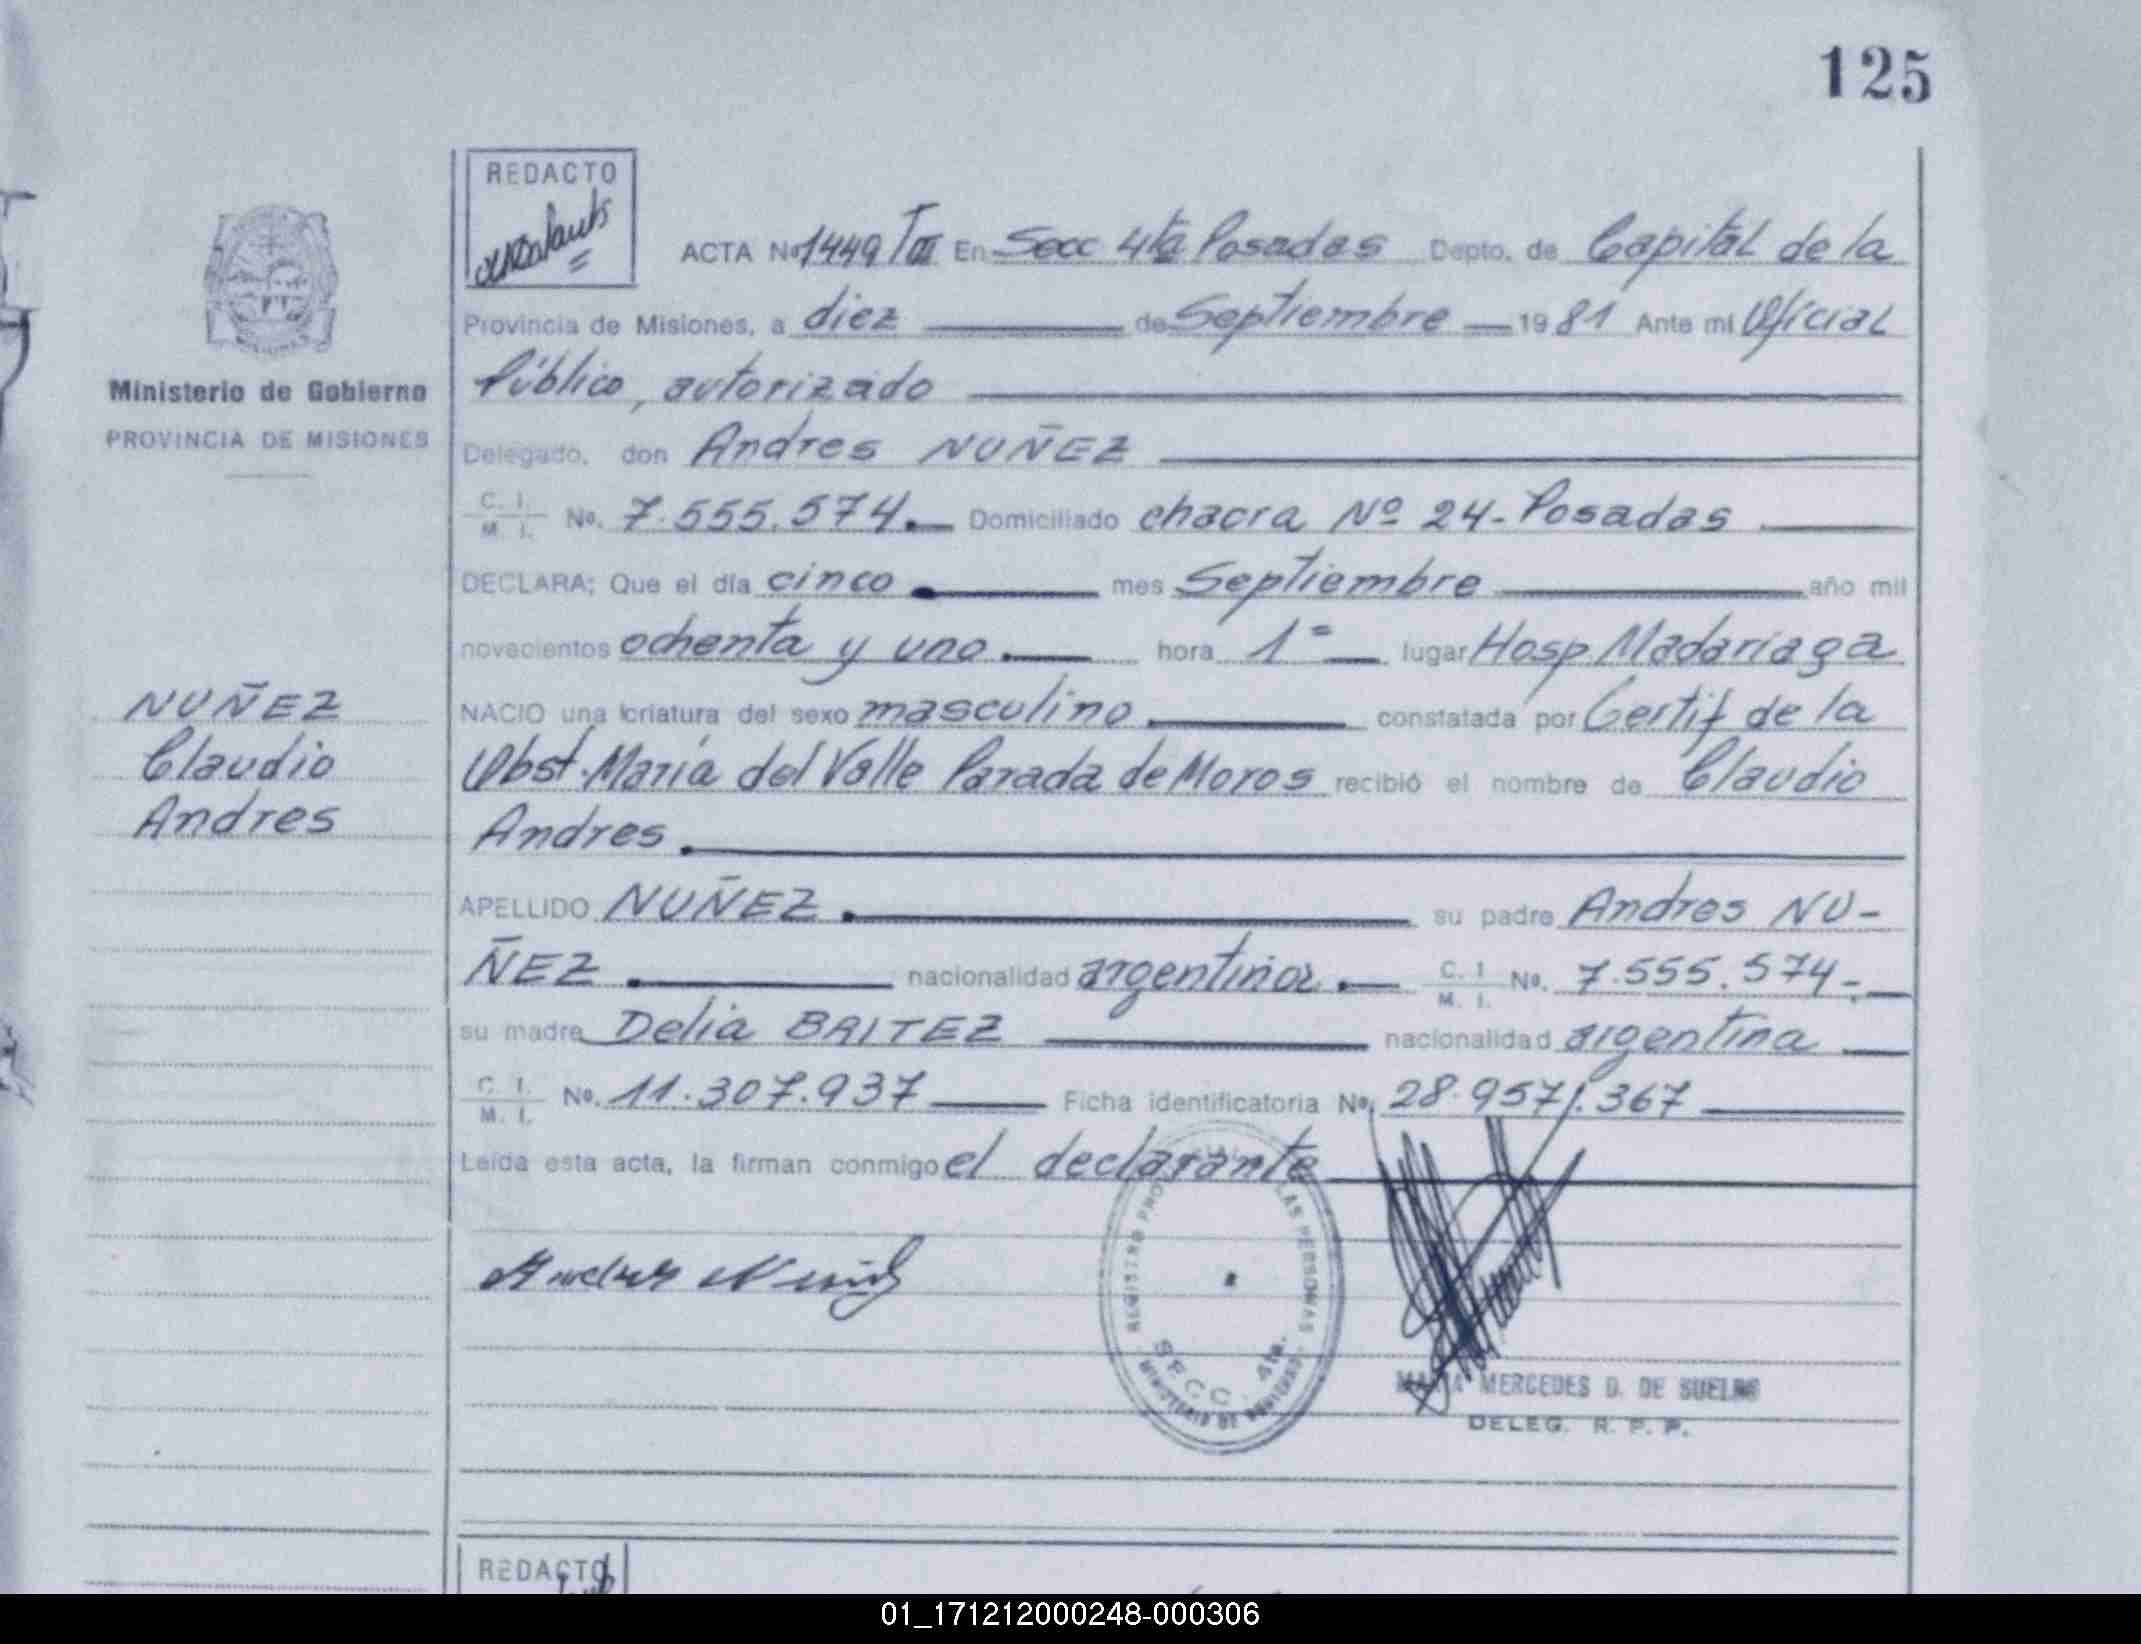 125
REDACTO
ACTA Nº 1449 TIII En Secc 4ta Posadas Depto. de Capital de la
Provincia de Misiones, a diez de Septiembre 1981 Ante mi Oficial
Público, autorizado
Ministerio de Gobierno
PROVINCIA DE MISIONES
Delegado, don Andres NUÑEZ
C. I. M. I. No. 7.555.574. Domiciliado chacra Nº 24 - Posadas
DECLARA; Que el día cinco mes Septiembre año mil
novecientos ochenta y uno hora 1= lugar Hosp. Madariaga
NUÑEZ
Claudio
Andres
NACIO una criatura del sexo masculino constatada por Certif de la
Obst. María del Valle Parada de Moros recibió el nombre de Claudio
Andres
APELLIDO NUÑEZ su padre Andres NU-
ÑEZ nacionalidad argentina C. I. M. I. No. 7.555.574-
su madre Delia BAITEZ nacionalidad argentina
C. I. M. I. No. 11.307.937 Ficha identificatoria No. 28.957.367
Leída esta acta, la firman conmigo el declarante
Andres Nuñez
REGISTRO LAS PERSONAS
SECC. 4ta.
MINISTERIO DE
MARIA MERCEDES D. DE
DELEG. R. P. P.
REDACTO
01_171212000248-000306